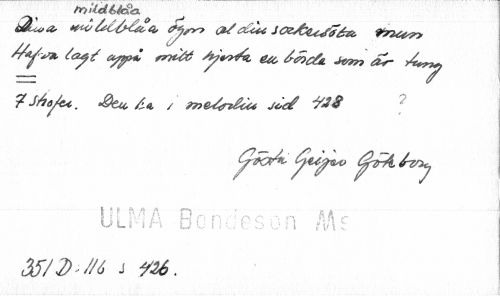 mildblåa
Dina mildblåa ögon al din sockersöta mun
Hafva lagt uppå mitt hjerta en börda som är tung
7 strofer. Den 1:a i melodin sid 428 ?
Gösta Geijer Göteborg
ULMA Bondeson Ms
351 D:116 s 426.